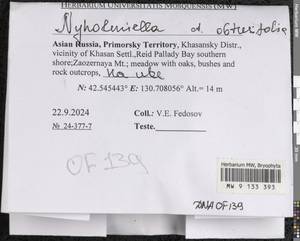 HERBARIUM UNIVERSITATIS MOSQUENSIS (MW)
Nyholmiella cf. obtusifolia
Asian Russia, Primorsky Territory, Khasansky Distr.,
vicinity of Khasan Settl.,Reid Pallady Bay southern
shore;Zaozernaya Mt.; meadow with oaks, bushes and
rock outcrops,
N: 42.545443° E: 130.708056° Alt.= 14 m
22.9.2024 Coll.: V.E. Fedosov
№ 24-377-7 Teste.
OF 139
Herbarium MW, Bryophyta
MW 9 133 393
DNA OF139